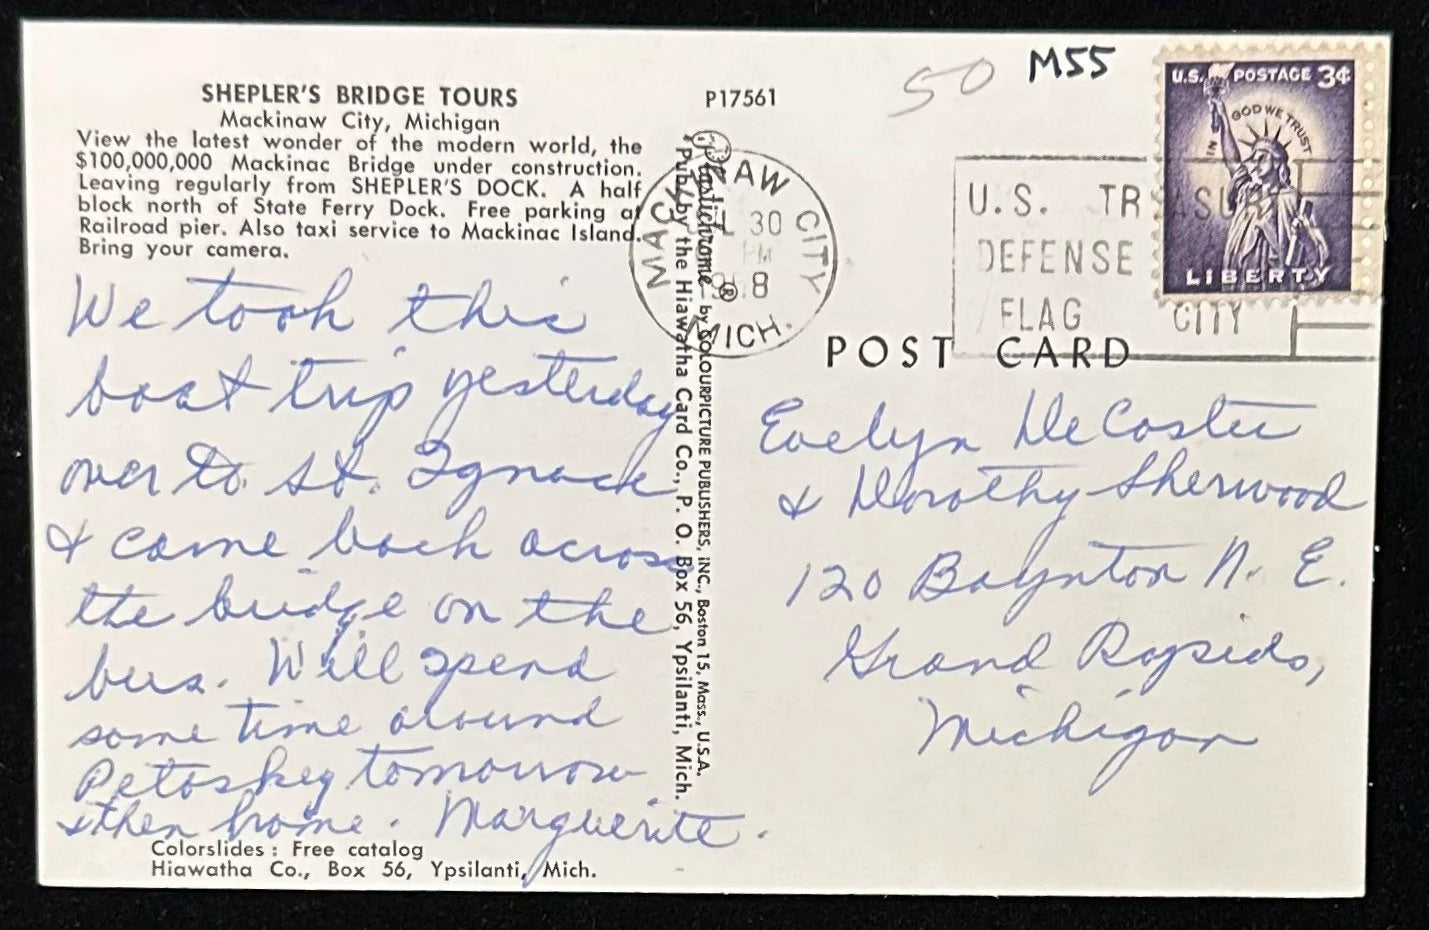 SHEPLER'S BRIDGE TOURS
Mackinaw City, Michigan
View the latest wonder of the modern world, the
$100,000,000 Mackinac Bridge under construction.
Leaving regularly from SHEPLER'S DOCK. A half
block north of State Ferry Dock. Free parking at
Railroad pier. Also taxi service to Mackinac Island.
Bring your camera.
We took this
boat trip yesterday
over to St. Ignace
& came back across
the bridge on the
bus. Will spend
some time around
Petoskey tomorrow
& then home. Marguerite.
Colorslides: Free catalog
Hiawatha Co., Box 56, Ypsilanti, Mich.
P17561
Plastichrome ® by COLOURPICTURE PUBLISHERS, INC., Boston 15, Mass., U.S.A.
Pub. by the Hiawatha Card Co., P. O. Box 56, Ypsilanti, Mich.
50
M55
U.S. POSTAGE 3¢
IN GOD WE TRUST
LIBERTY
CITY
MICH.
30
PM
U.S.
DEFENSE
FLAG CITY
POST CARD
Evelyn De Coster
& Dorothy Sherwood
120 Boynton N. E.
Grand Rapids,
Michigan